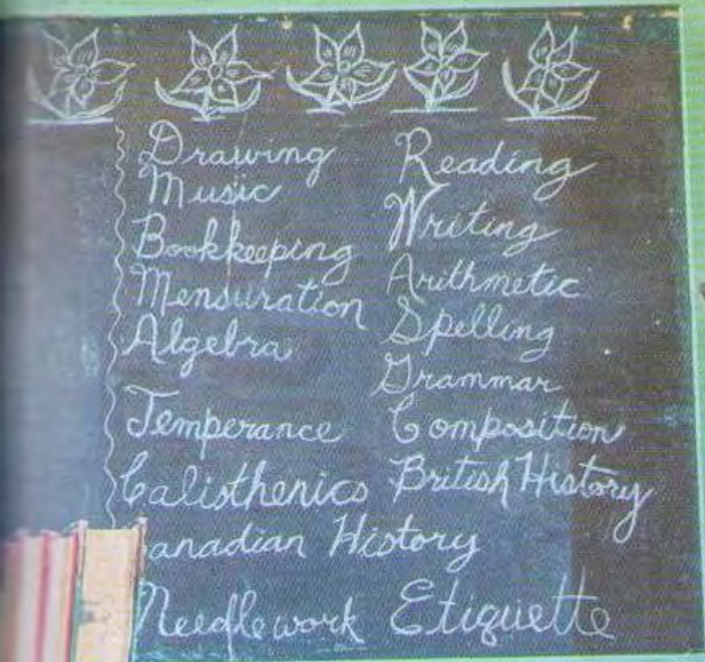 Drawing
Music
Bookkeeping
Mensuration
Algebra
Temperance
Calisthenics
anadian History
Needlework
Reading
Writing
Arithmetic
Spelling
Grammar
Composition
British History
Etiquette